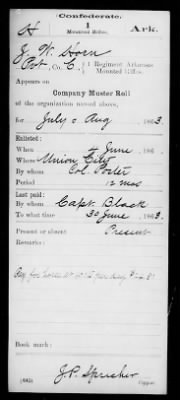 Confederate.
H 1 Ark.
Mounted Rifles.
J. W. Horn
Pvt., Co. C, 1 Regiment Arkansas
Mounted Rifles.
Appears on
Company Muster Roll
of the organization named above,
for July & Aug, 1863.
Enlisted:
When 4 June, 186
Where Union City
By whom Col. Porter
Period 12 mos
Last paid:
By whom Capt. Black
To what time 30 June, 1863.
Present or absent Present
Remarks:
Pay for horse at 40 cts per day
Book mark:
J. P. Sprecher
(642) Copyist.